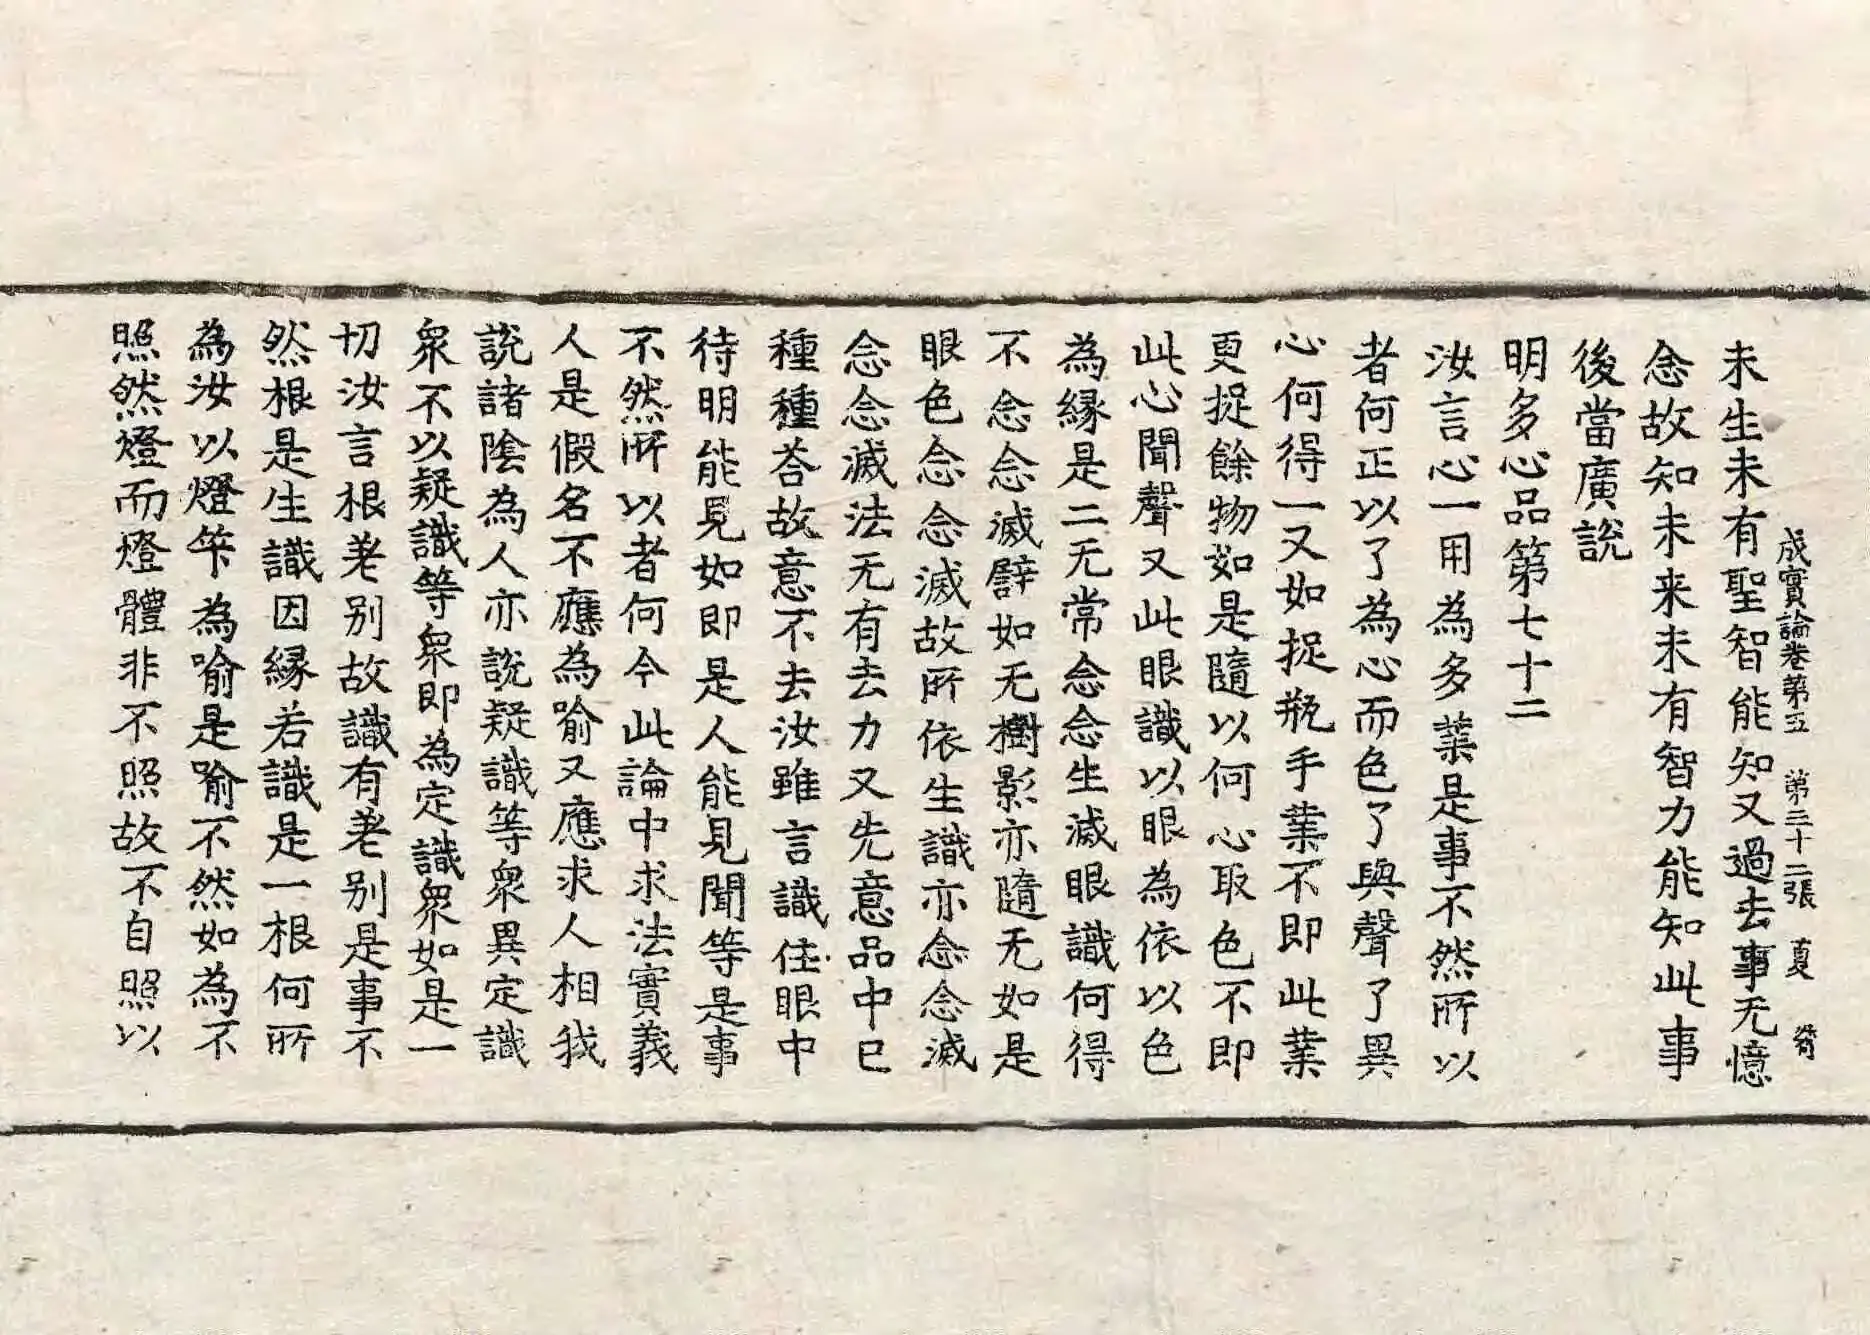 成實論卷第五 第三十二張 夏
未生未有聖智能知又過去事无憶
念故知未来未有智力能知此事
後當廣說
明多心品第七十二
汝言心一用為多業是事不然所以
者何正以了為心而色了與聲了異
心何得一又如捉瓶手業不即此業
更捉餘物如是隨以何心取色不即
此心聞聲又此眼識以眼為依以色
為縁是二无常念念生滅眼識何得
不念念滅譬如无樹影亦隨无如是
眼色念念滅故所依生識亦念念滅
念念滅法无有去力又先意品中已
種種荅故意不去汝雖言識住眼中
待明能見如即是人能見聞等是事
不然所以者何今此論中求法實義
人是假名不應為喻又應求人相我
說諸陰為人亦說疑識等衆異定識
衆不以疑識等衆即為定識衆如是一
切汝言根差别故識有差别是事不
然根是生識因縁若識是一根何所
為汝以燈等為喻是喻不然如為不
照然燈而燈體非不照故不自照以